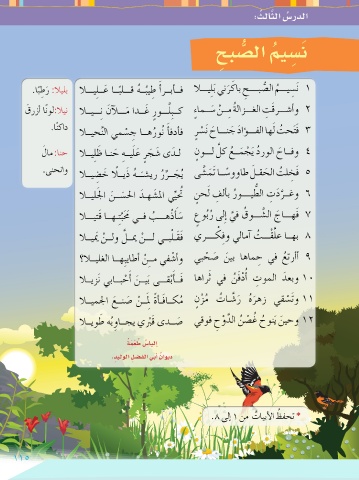 الدرسُ الثّالثُ:
نَسِيمُ الصُّبحِ
١ نَسِيمُ الصُّبحِ باكَرَني بَلِيلا فأَبرأَ طِيبُهُ قلبًا عَلِيلا
٢ وأشرقَتِ الغزالةُ مِنْ سَماءٍ كبِلَّورٍ غَدا مَلآنَ نِيلا
٣ فَتَحتُ لَها الفؤادَ جَناحَ نَسْرٍ فأدفأَ نُورُها جِسْمي النَّحِيلا
٤ وفاحَ الوردُ يَجْمَعُ كلَّ لَونٍ لدى شَجَرٍ عَلَيهِ حَنا ظَلِيلا
٥ فَخِلتُ الحَقلَ طاووسًا تَمشّى يُجَرِّرُ رِيشَهُ ذَيلًا خَضِيلا
٦ وغرَّدَتِ الطُّيورُ بألفِ لَحنٍ تُحَيّي المشهدَ الحسَنَ الجَلِيلا
٧ فَهاجَ الشَّوقُ فيَّ إلى رُبُوعٍ سَأذهبُ في مَحَبَّتِها قَتِيلا
٨ بها علَّقْتُ آمالي وفِكْري فَقَلْبي لَنْ يملَّ ولَنْ يَمِيلا
٩ أأرتَعُ في حِماها بينَ صَحْبي وأشْفي مِنْ أطايبِها الغَلِيلا؟
١٠ وبعدَ الموتِ أُدْفَنُ في ثَراها فأبْقى بَينَ أحْبابي نَزِيلا
١١ وتَسْقي زهرَهُ رَشّاتُ مُزْنٍ مُكافأةً لِمَنْ صَنعَ الجَمِيلا
١٢ وحينَ ينوحُ غُصْنُ الدَّوْحِ فوقي صَدى قَبْري يجاوِبُه طَوِيلا
إلياسُ طُعمةُ
ديوانُ أبي الفضلِ الوليد.
بليلا: رَطْبًا.
نيلا: لونًا أزرقَ
داكنًا.
حنا: مالَ
وانحنى.
* تحفظُ الأبياتُ من ١ إلى ٨.
١١٥